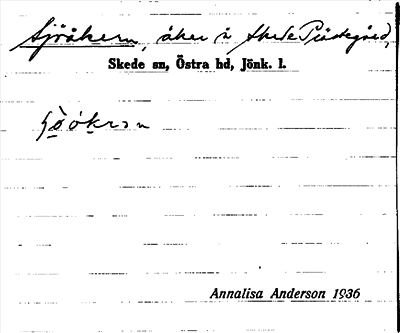 Sjöåkern, åker å Skede Prästegård,
Skede sn, Östra hd, Jönk. l.
Annalisa Anderson 1936